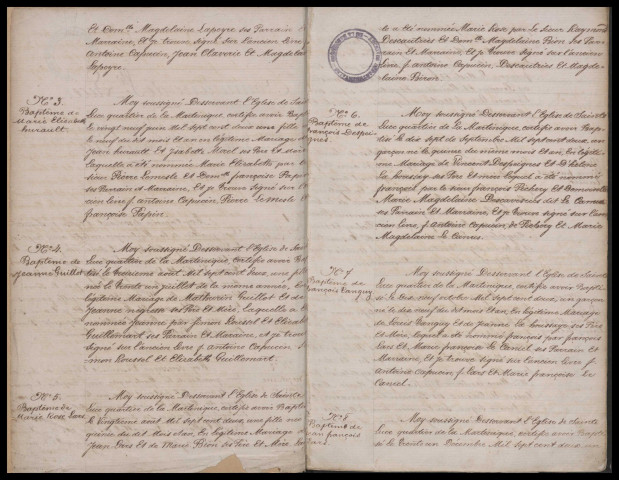 Et Dem.lle Magdelaine Lapeyre ses Parrain et
Marraine, Et jy trouve Signé sur l'ancien livre
Antoine Capucin, Jean Claverie Et Magdel
Lapeyre.
N.o 3.
Baptême de
Marie Elizabeth
hurault.
Moy soussigné Desservant l'Eglise de Sainte
Luce quartier de la Martinique, certifie avoir Baptisé
le vingt neuf juin Mil Sept cent deux une fille
le neuf du dit mois et an en légitime Mariage d
Jean hurault Et Isabelle
Laquelle a été nommée Marie Elizabeth par le
sieur Pierre Lemesle et Dem.lle françoise Papin
ses Parrain et Marraine, Et jy trouve signé sur l'an
cien livre f. antoine Capucin Pierre Lemesle et
françoise Papin.
N.o 4.
Baptême de
Jeanne Guillot
Moy soussigné Desservant l'Eglise de Sainte
Luce quartier de la Martinique certifie avoir Bap
tisé le troisieme août Mil Sept cent Deux, une fille
née le trente un juillet de la meme année, Et de
légitime Mariage de Mathurin Guillot Et de
Jeanne ses Père et Mère, Laquelle a été
nommée Jeanne par Simon Roussel Et Elizabeth
Guillemart ses Parrain Et Marraine, et jy trouve
signé sur l'ancien livre f. antoine Capucin Si
mon Roussel Et Elizabeth Guillemart.
N.o 5.
Baptême de
Marie Rose
Moy soussigné Desservant l'Eglise de Sainte
Luce quartier de la Martinique, certifie avoir Baptisé
le vingtieme août Mil Sept cent deux, une fille née
quinze du dit Mois et an, En légitime Mariage de
Jean Et de Marie Biron ses Père Et Mère
le a été nommée Marie Rose par le Sieur Raymond
Descautries Et Dem.lle Magdelaine Biron ses Par
rain Et Marraine, Et jy trouve signé sur l'ancien
livre, f. antoine Capucin, Descautries Et Magde
laine Biron.
N.o 6.
Baptême de
françois Despoi
gnes.
Moy soussigné Desservant l'Eglise de Sainte
Luce quartier de la Martinique certifie avoir Bap
tisé le dix Sept de Septembre Mil Sept cent deux, un
garçon né le quinze du même mois et an, En légiti
me Mariage de Vincent Despoignes Et D'helene
ses Père et Mère Lequel a été nommé
françois par le sieur françois Et Demoiselle
Marie Magdelaine dit Le Camus
ses Parrain Et Marraine, Et jy trouve signé sur l'an
cien livre, f. antoine Capucin, de Et Marie
Magdelaine le Camus.
N.o 7
Baptême de
françois Tanguy.
Moy soussigné Desservant l'Eglise de Sainte
Luce quartier de la Martinique, certifie avoir Bapti
sé le dix neuf octobre Mil Sept cent deux, un garçon
né le dix neuf du dit mois et an, En légitime Mariage
de Louis Tanguy et de Jeanne la houssaye ses Père
et Mère, lequel a été nommé françois par françois
Et Marie françoise le Caniel ses Parrain et
Marraine, Et jy trouve signé sur l'ancien livre f.
antoine Capucin, f. Et Marie françoise le
Caniel.
N.o 8
Baptême de
Jean françois
Moy soussigné Desservant l'Eglise de Sainte
Luce quartier de la Martinique, certifie avoir Bapti
sé le trente un Décembre Mil Sept cent deux un